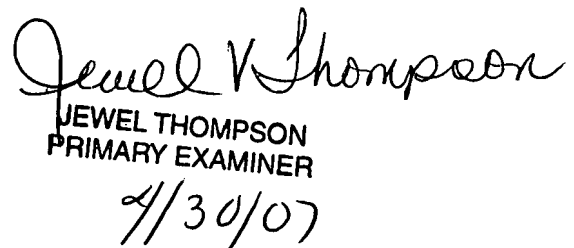 Jewel V Thompson
JEWEL THOMPSON
PRIMARY EXAMINER
4/30/07